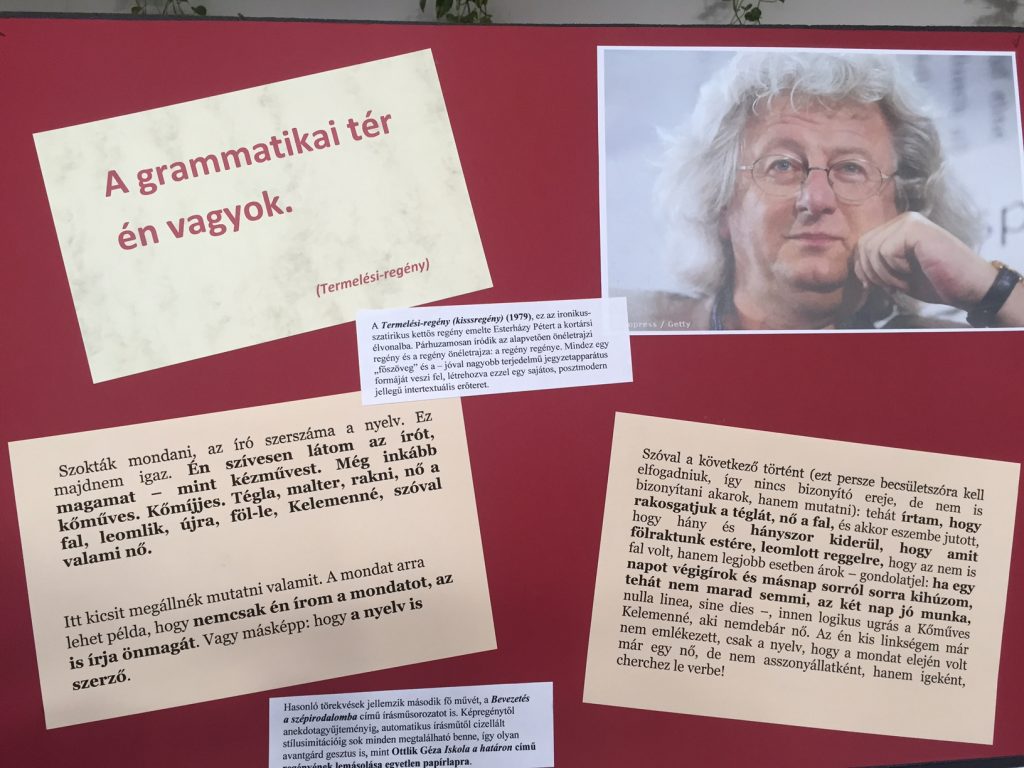 A grammatikai tér
én vagyok.
(Termelési-regény)
A Termelési-regény (kisssregény) (1979), ez az ironikus-
szatirikus kettős regény emelte Esterházy Pétert a kortársi
élvonalba. Párhuzamosan íródik az alapvetően önéletrajzi
regény és a regény önéletrajza: a regény regénye. Mindez egy
„főszöveg” és a – jóval nagyobb terjedelmű jegyzetapparátus
formáját veszi fel, létrehozva ezzel egy sajátos, posztmodern
jellegű intertextuális erőteret.
Szokták mondani, az író szerszáma a nyelv. Ez
majdnem igaz. Én szívesen látom az írót,
magamat – mint kézművest. Még inkább
kőműves. Kőmíjjes. Tégla, malter, rakni, nő a
fal, leomlik, újra, föl-le, Kelemenné, szóval
valami nő.
Itt kicsit megállnék mutatni valamit. A mondat arra
lehet példa, hogy nemcsak én írom a mondatot, az
is írja önmagát. Vagy másképp: hogy a nyelv is
szerző.
Szóval a következő történt (ezt persze becsületszóra kell
elfogadniuk, így nincs bizonyító ereje, de nem is
bizonyítani akarok, hanem mutatni): tehát írtam, hogy
rakosgatjuk a téglát, nő a fal, és akkor eszembe jutott,
hogy hány és hányszor kiderül, hogy amit
fölraktunk estére, leomlott reggelre, hogy az nem is
fal volt, hanem legjobb esetben árok – gondolatjel: ha egy
napot végigírok és másnap sorról sorra kihúzom,
tehát nem marad semmi, az két nap jó munka,
nulla linea, sine dies –, innen logikus ugrás a Kőműves
Kelemenné, aki nemdebár nő. Az én kis linkségem már
nem emlékezett, csak a nyelv, hogy a mondat elején volt
már egy nő, de nem asszonyállatként, hanem igeként,
cherchez le verbe!
Hasonló törekvések jellemzik második fő művét, a Bevezetés
a szépirodalomba című írásműsorozatot is. Képregénytől
anekdotagyűjteményig, automatikus írásműtől cizellált
stílusimitációig sok minden megtalálható benne, így olyan
avantgárd gesztus is, mint Ottlik Géza Iskola a határon című
regényének lemásolása egyetlen papírlapra.
press / Getty